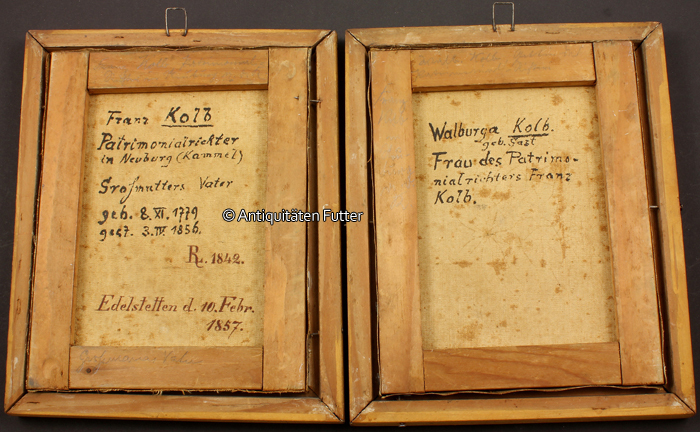 Franz Kolb
Patrimonialrichter
in Neuburg (Kammel)
Großmutters Vater
geb. 8. XI. 1779
gest. 3. IV. 1856.
R. 1842.
Edelstetten d. 10. Febr.
1857.
Walburga Kolb.
geb. Gast
Frau des Patrimo-
nialrichters Franz
Kolb.
© Antiquitäten Futter